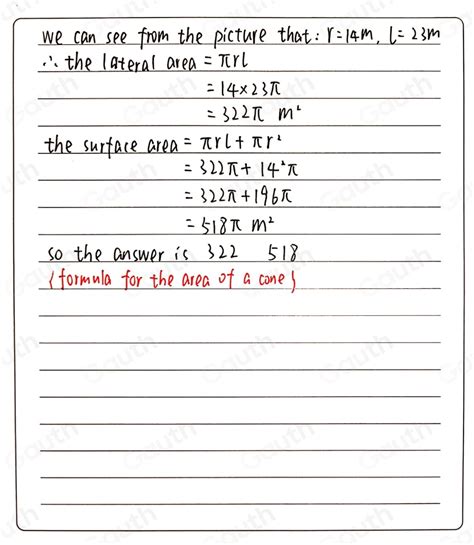 we can see from the picture that: r=14m, l=23m
∴ the lateral area = πrl
= 14×23π
= 322π m²
the surface area = πrl + πr²
= 322π + 14²π
= 322π + 196π
= 518π m²
so the answer is 322 518
(formula for the area of a cone)